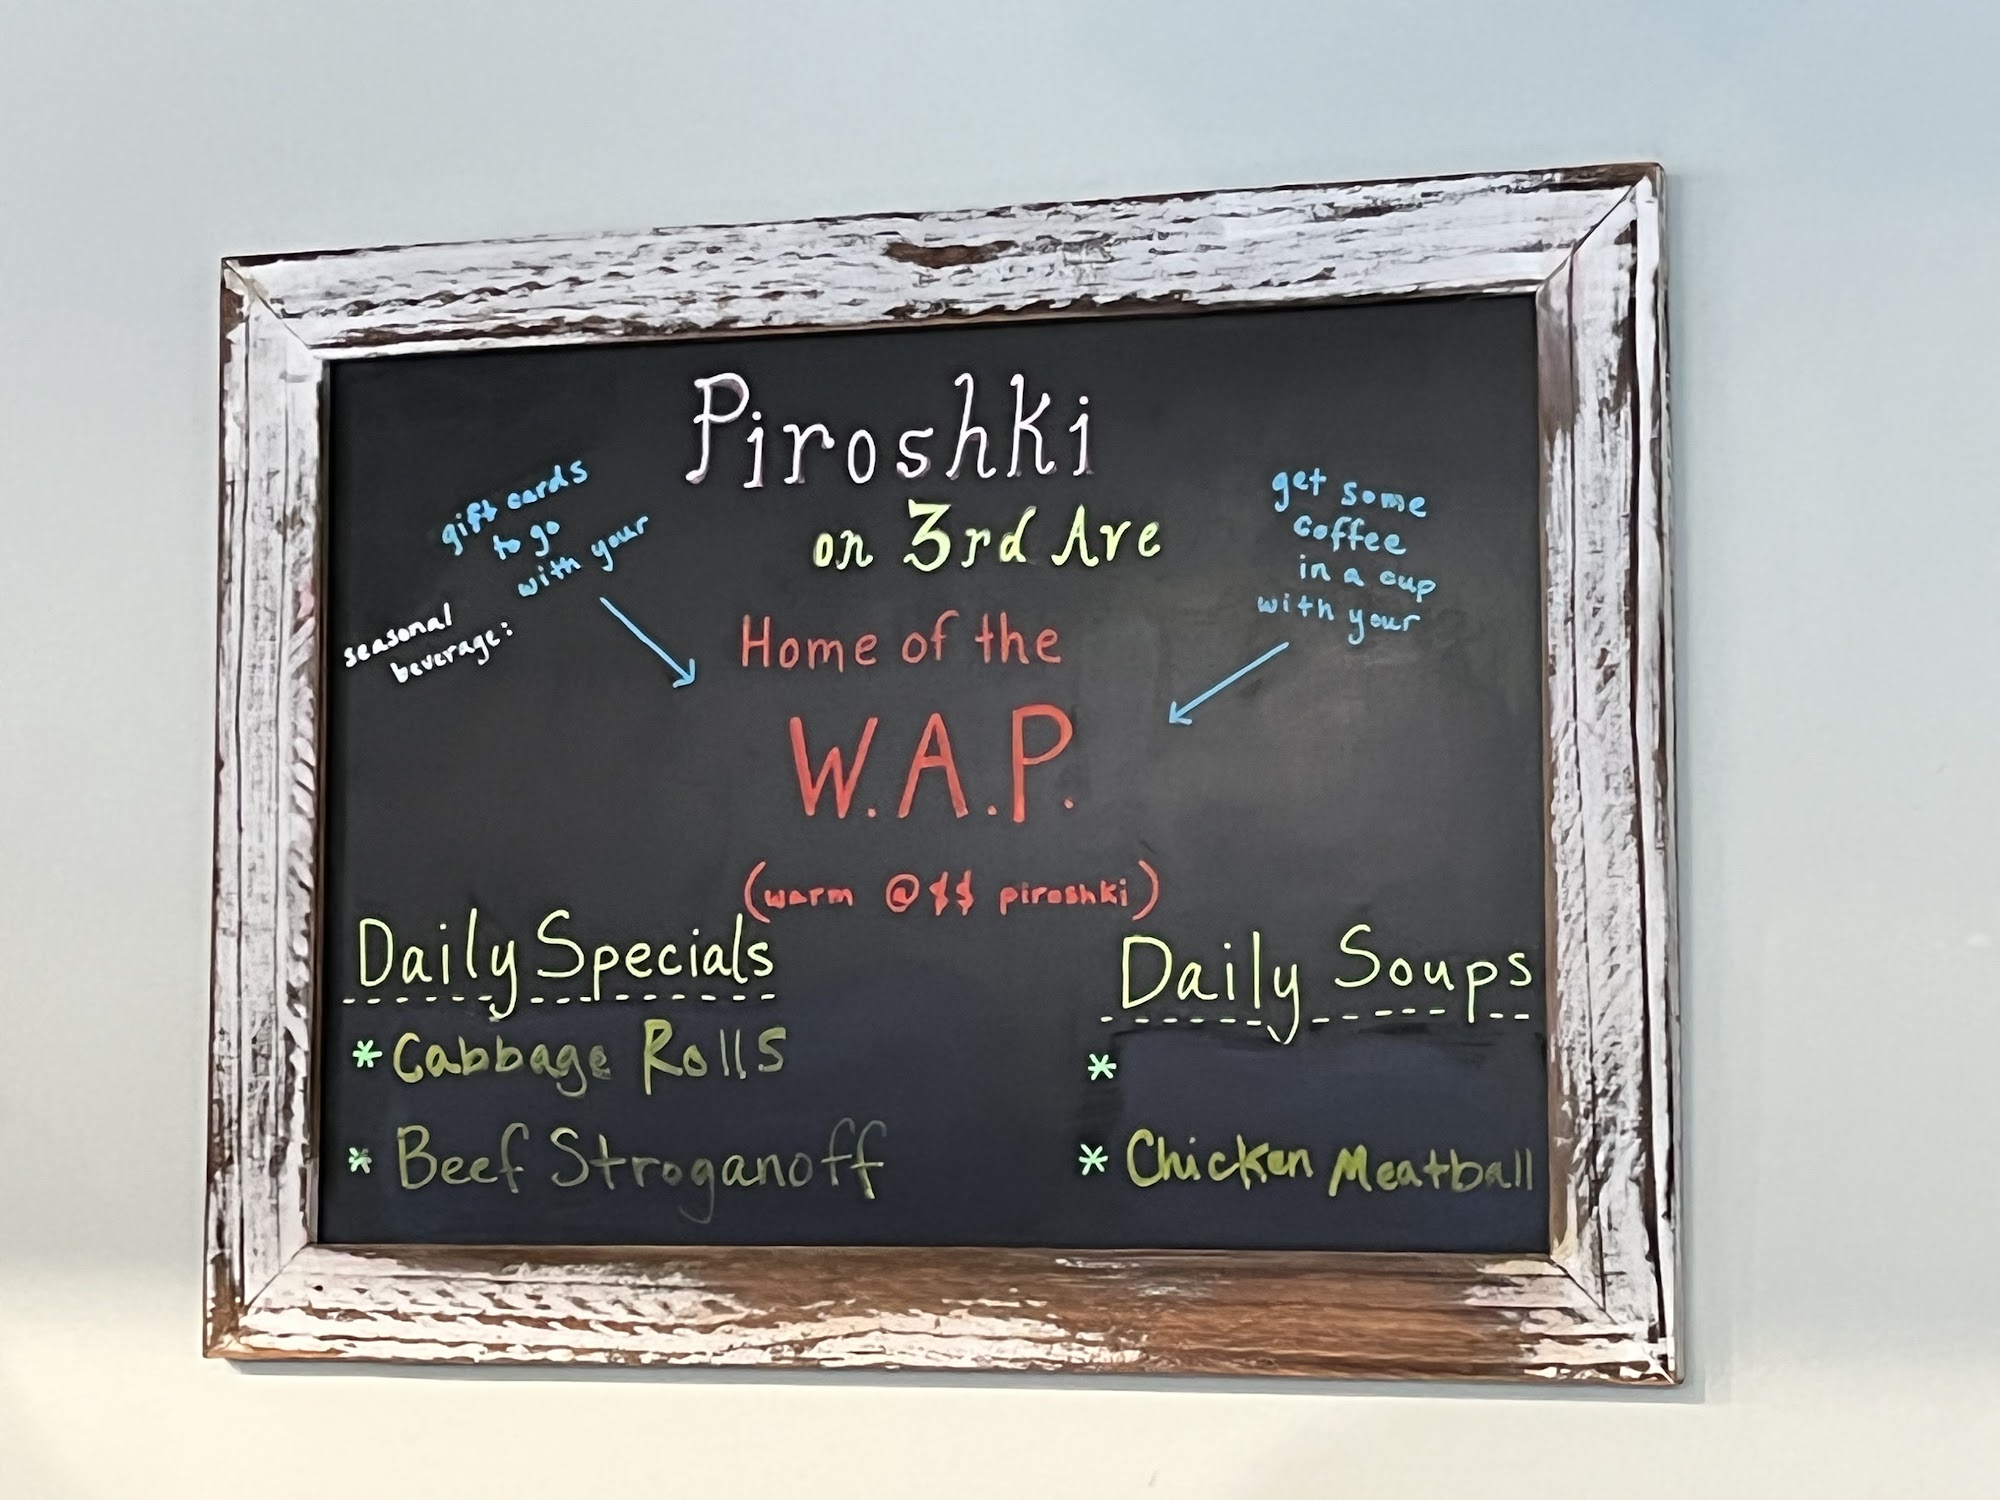 Piroshki
on 3rd Ave
gift cards
to go
with your
seasonal
beverage:
get some
coffee
in a cup
with your
Home of the
W.A.P.
(warm @$$ piroshki)
Daily Specials
* Cabbage Rolls
* Beef Stroganoff
Daily Soups
*
* Chicken Meatball